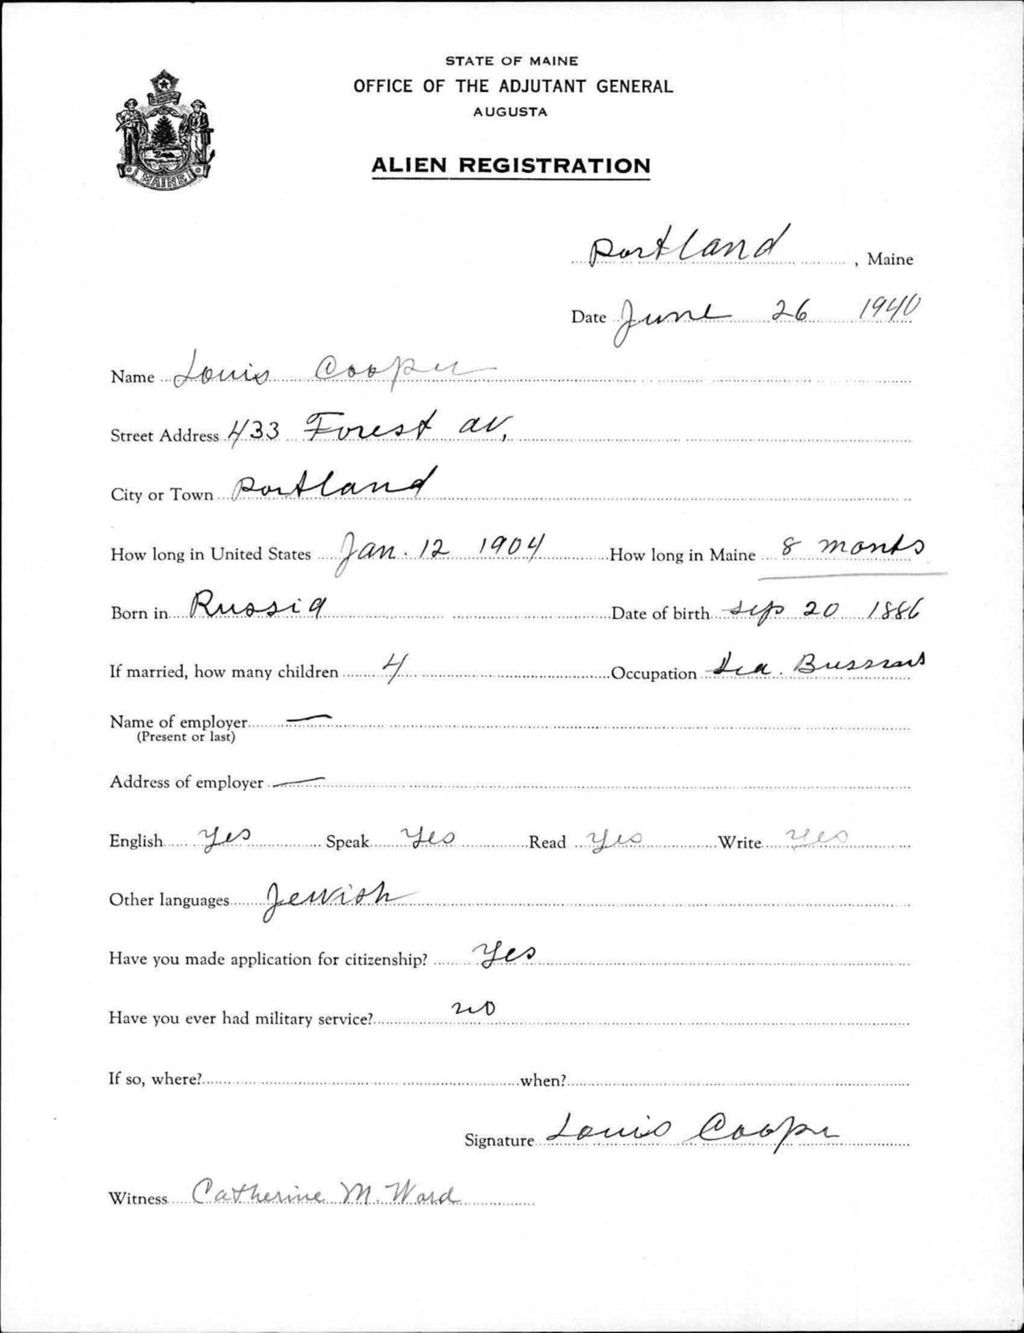 STATE OF MAINE
OFFICE OF THE ADJUTANT GENERAL
AUGUSTA
MAINE
ALIEN REGISTRATION
Portland, Maine
Date June 26 1940
Name Louis Cooper
Street Address 433 Forest av,
City or Town Portland
How long in United States Jan. 12 1904 How long in Maine 8 monts
Born in Russia Date of birth Sep 20 1886
If married, how many children 4 Occupation
Name of employer —
(Present or last)
Address of employer —
English Yes Speak Yes Read Yes Write Yes
Other languages Jewish
Have you made application for citizenship? Yes
Have you ever had military service? no
If so, where? when?
Signature Louis Cooper
Witness Catherine M. Ward